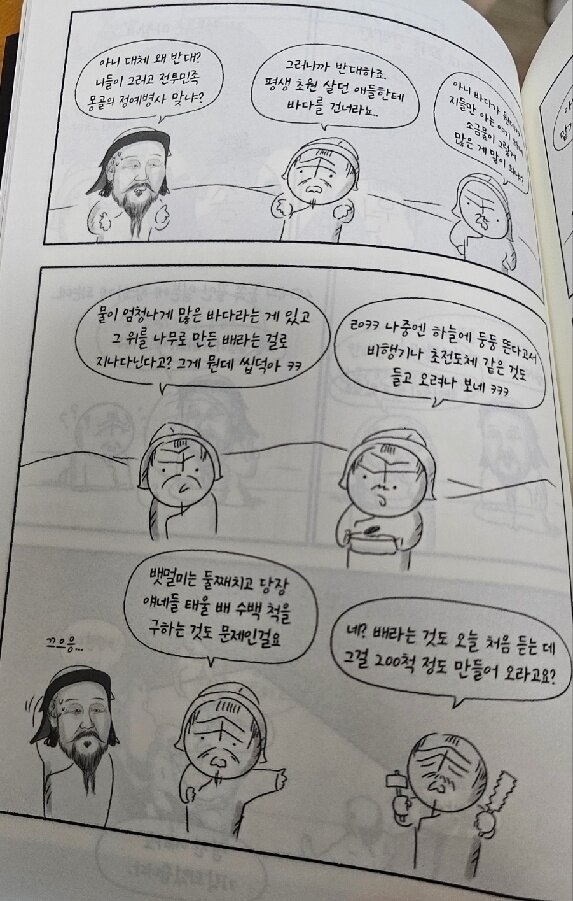 아니 대체 왜 반대?
니들이 그러고 전투민족
몽골의 정예병사 맞냐?
그러니까 반대하죠.
평생 초원 살던 애들한테
바다를 건너라뇨..
아니 바다가
지들만 아는
소금물이 그렇게
많은 게 말이
물이 엄청나게 많은 바다라는 게 있고
그 위를 나무로 만든 배라는 걸로
지나다닌다고? 그게 뭔데 씹덕아 ㅋㅋ
ㄹㅇㅋㅋ 나중엔 하늘에 둥둥 뜬다고서
비행기나 초전도체 같은 것도
들고 오려나 보네 ㅋㅋㅋ
뱃멀미는 둘째치고 당장
얘네들 태울 배 수백 척을
구하는 것도 문제인걸요
끄으응...
네? 배라는 것도 오늘 처음 듣는 데
그걸 200척 정도 만들어 오라고요?